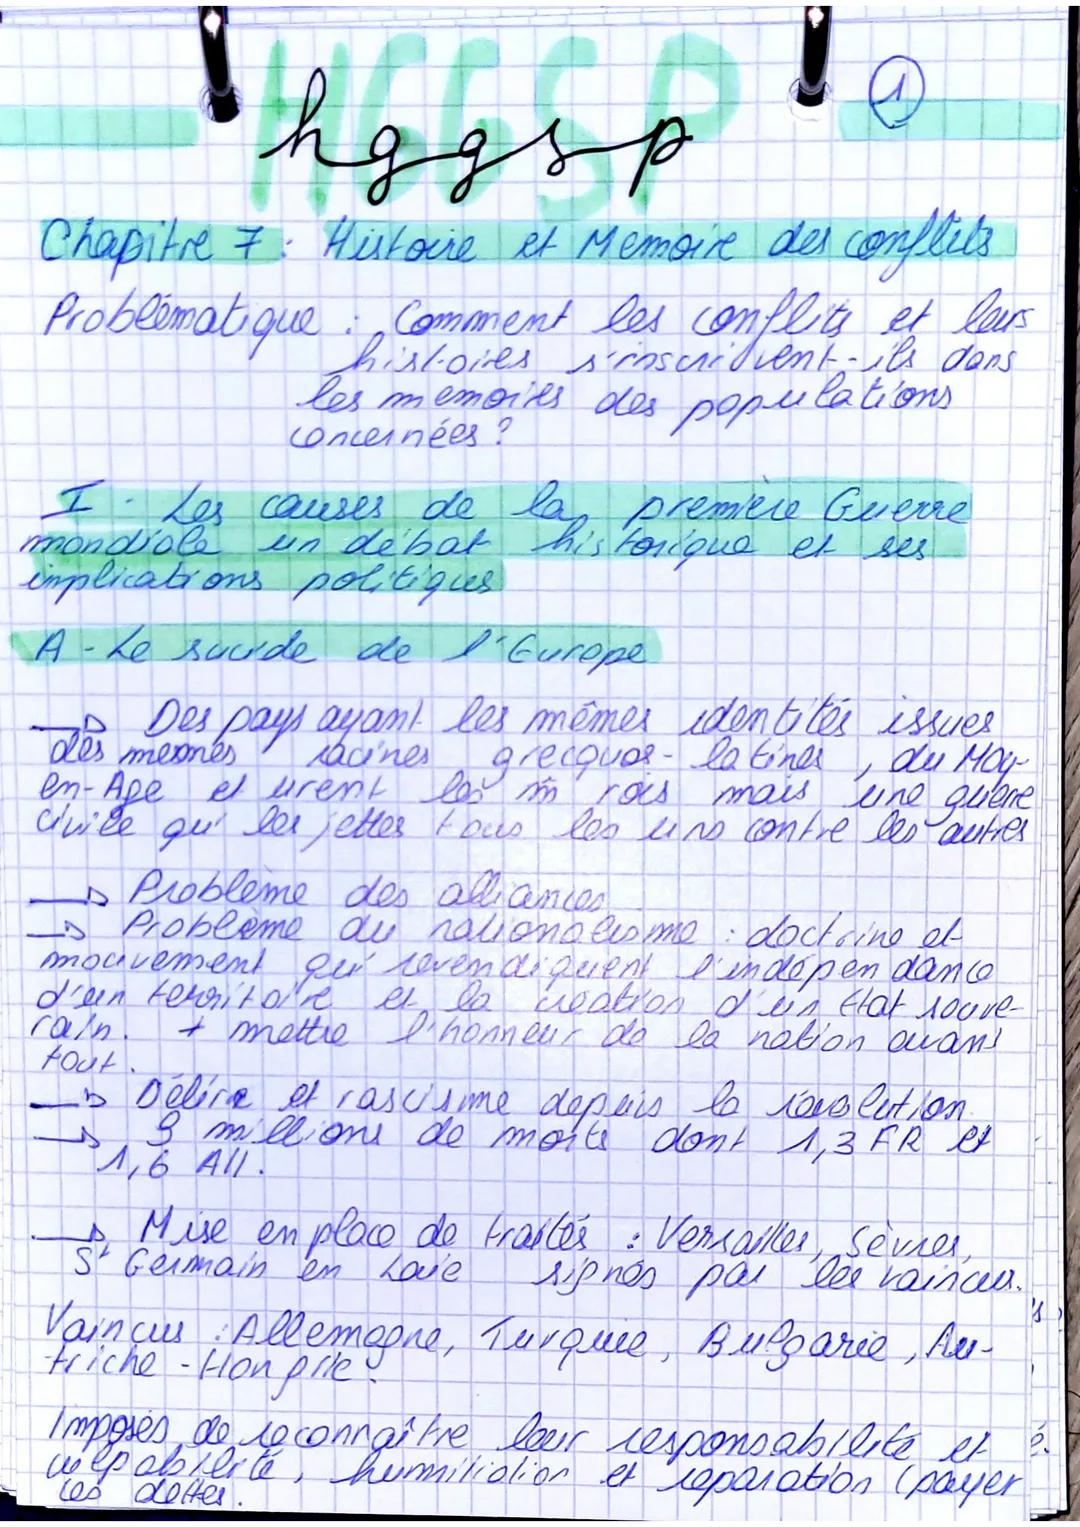 HGGSP
hggsp
1
Chapitre 7 : Histoire et Memoire des conflits
Problématique : Comment les conflits et leurs
histoires s'inscrivent-ils dans
les memoires des populations
concernées ?
I - Les causes de la première Guerre
mondiale un débat historique et ses
implications politiques
A - Le suicide de l'Europe
→ Des pays ayant les mêmes identités issues
des mesmes racines grecquos-latines, du Moy-
en-Age et urent les m̂ rois mais une guerre
civile qui les jettes tous les uns contre les autres
→ Problème des alliances
→ Problème du nationalisme : doctrine et
mouvement qui revendiquent l'indépendance
d'un territoire et la création d'un Etat souve-
rain. + mettre l'honneur de la nation avant
tout.
→ Délire et rascisme depuis la révolution
→ 9 millions de morts dont 1,3 FR et
1,6 All.
→ Mise en place de traités : Versailles, Sèvres,
St Germain en Laie signés par les vaincus.
Vaincus : Allemagne, Turquie, Bulgarie, Au-
triche-Hongrie.
Imposés de reconnaître leur responsabilité et
culpabilité, humiliation et réparation (payer
les dettes.